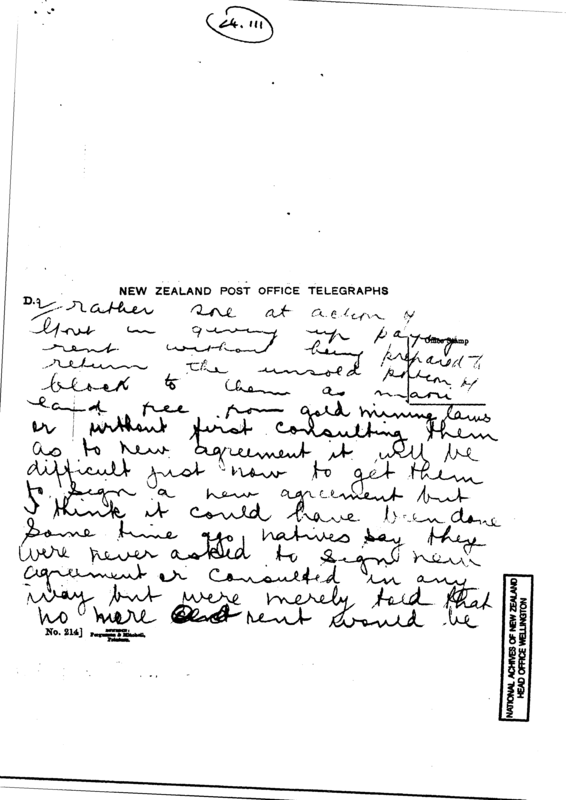 24.111
NEW ZEALAND POST OFFICE TELEGRAPHS
D.2
Office Stamp
rather sore at action of
Govt in giving up paying
rent without being prepared to
return the unsold portion of
block to them as maori
land free from gold mining laws
or without first consulting them
as to new agreement it will be
difficult just now to get them
to sign a new agreement but
I think it could have been done
some time ago, natives say they
were never asked to sign new
agreement or consulted in any
way but were merely told that
no more rent would be
No. 214]
Ferguson & Mitchell,
NATIONAL ACHIVES OF NEW ZEALAND
HEAD OFFICE WELLINGTON